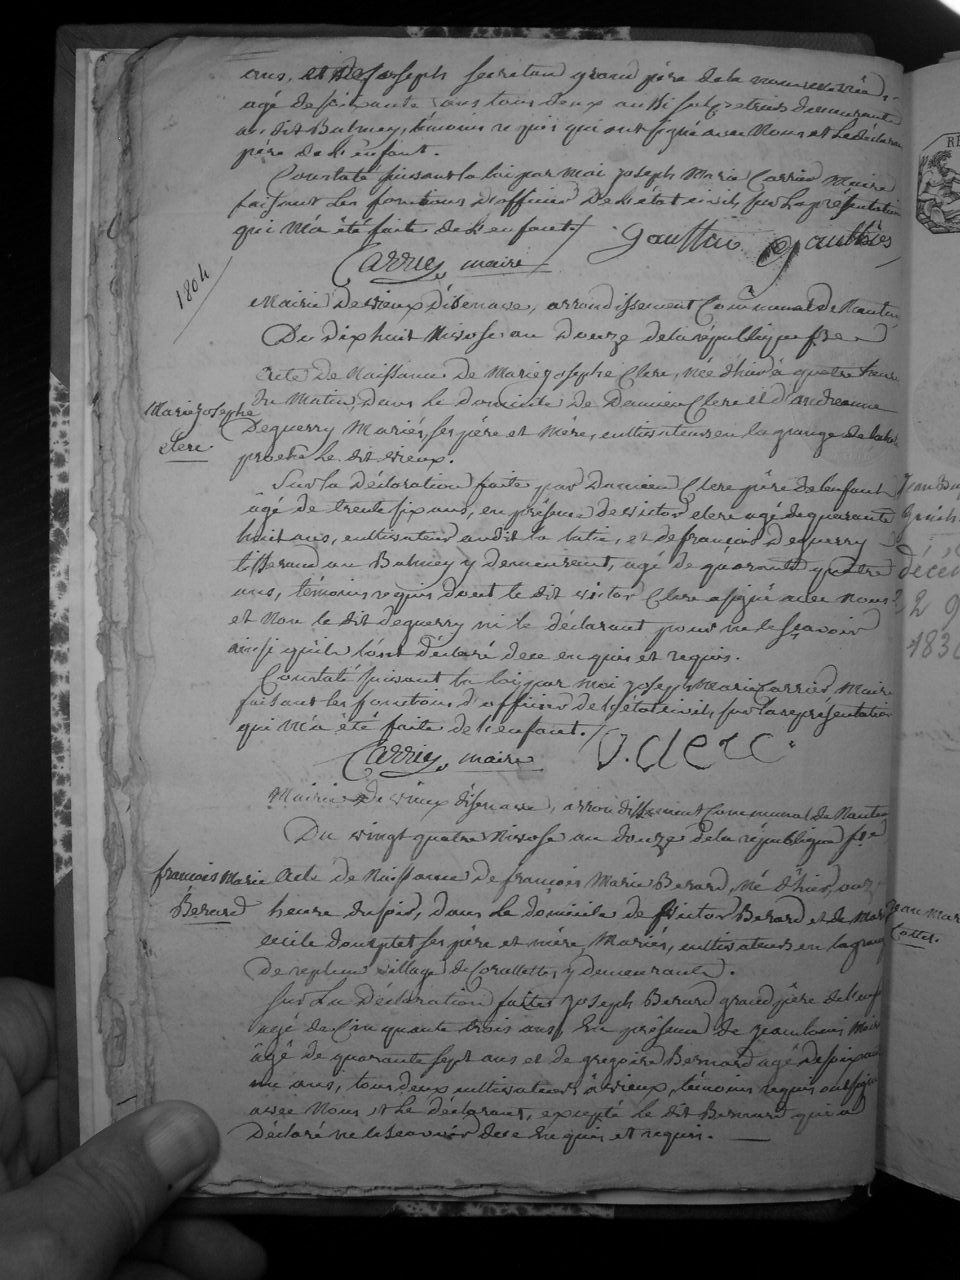 ans, et de Joseph Secretan grand père de la nouvellée née
agé de soixante ans tous deux aussi salpetriers demeurants
au dit Balmey, témoins requis qui ont signé avec Nous et le déclarant
père de l'enfant.
Constaté suivant la loi par moi joseph Marie Carrier Maire
faisant les fonctions d'officier de l'état civil, sur la présentation
qui m'a été faite de l'enfant /. gauthier
Carrier maire
1804
Mairie de vieux d'isenave, arrondissement Communal de Nantua
Du dix huit Nivose an douze de la république fse
Acte de Naissance de Marie josephe Clerc, née d'hier à quatre heure
Marie josephe
du Matin, dans le domicile de Damien Clerc et d'andréanne
Clerc
Deguerry Mariés, ses père et Mere, cultivateurs en la grange de
proche le dit vieux.
Sur la déclaration faite par Damien Clerc père de l'enfant
âgé de trente six ans, en présence de victor clerc agé de quarante
huit ans, cultivateur audit la, et de françois Deguerry
tisserand au Balmey y demeurant, agé de quarante quatre
ans, témoins requis dont le dit victor Clerc a signé avec nous
et Non le dit deguerry ni le déclarant pour ne le sçavoir
ainsi qu'ils l'ont déclaré de ce enquis et requis.
Constaté suivant la loi par moi joseph Marie Carrier, Maire
faisant les fonctions d'officier de l'état civil, sur la représentation
qui m'a été faite de l'enfant. / V. clerc
Carrier maire
Mairie de vieux d'isenave, arrondissement Communal de Nantua
Du vingt quatre Nivose an douze de la république fse
françois Marie
Acte de Naissance de françois Marie Berard, né d'hier, onze
Berard
heure du soir, dans le domicile de victor Berard et de Marie
cecile ses père et mère, Mariés, cultivateurs en la grange
de village de Corallettes y demeurants.
Sur la Déclaration faites joseph Berard grand père de l'enfant
agé de Cinquante trois ans, En présence de jean louis
âgé de quarante sept ans et de gregoire Bernard agé de soixante
un ans, tous deux cultivateurs à vieux, témoins requis ont signé
avec Nous et le déclarant, excepté le dit Bernard qui a
Déclaré ne le sçavoir de ce Enquis et requis.
déce
2 9
183
jean mar
Cottet.